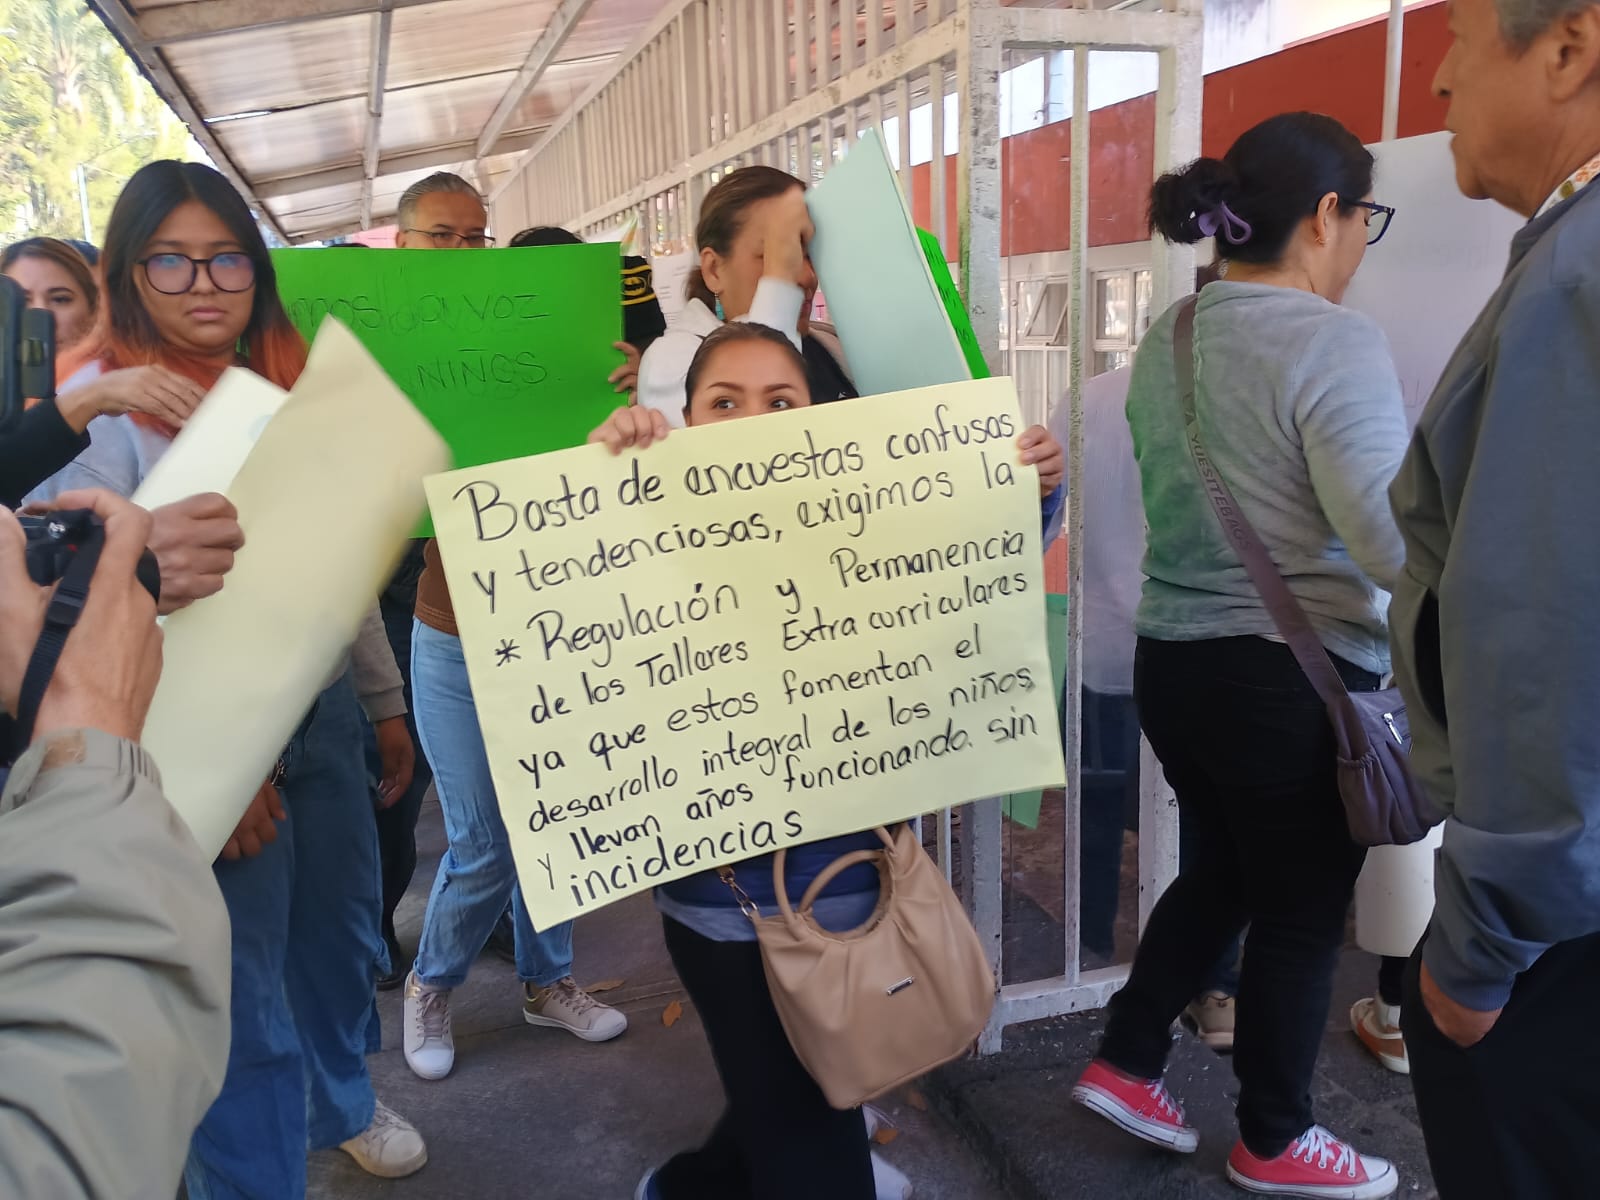 la voz
NIÑOS
Basta de encuestas confusas
y tendenciosas, exigimos la
* Regulación y Permanencia
de los Talleres Extracurriculares
ya que estos fomentan el
desarrollo integral de los niños
y llevan años funcionando sin
incidencias
YUESITEBAGS